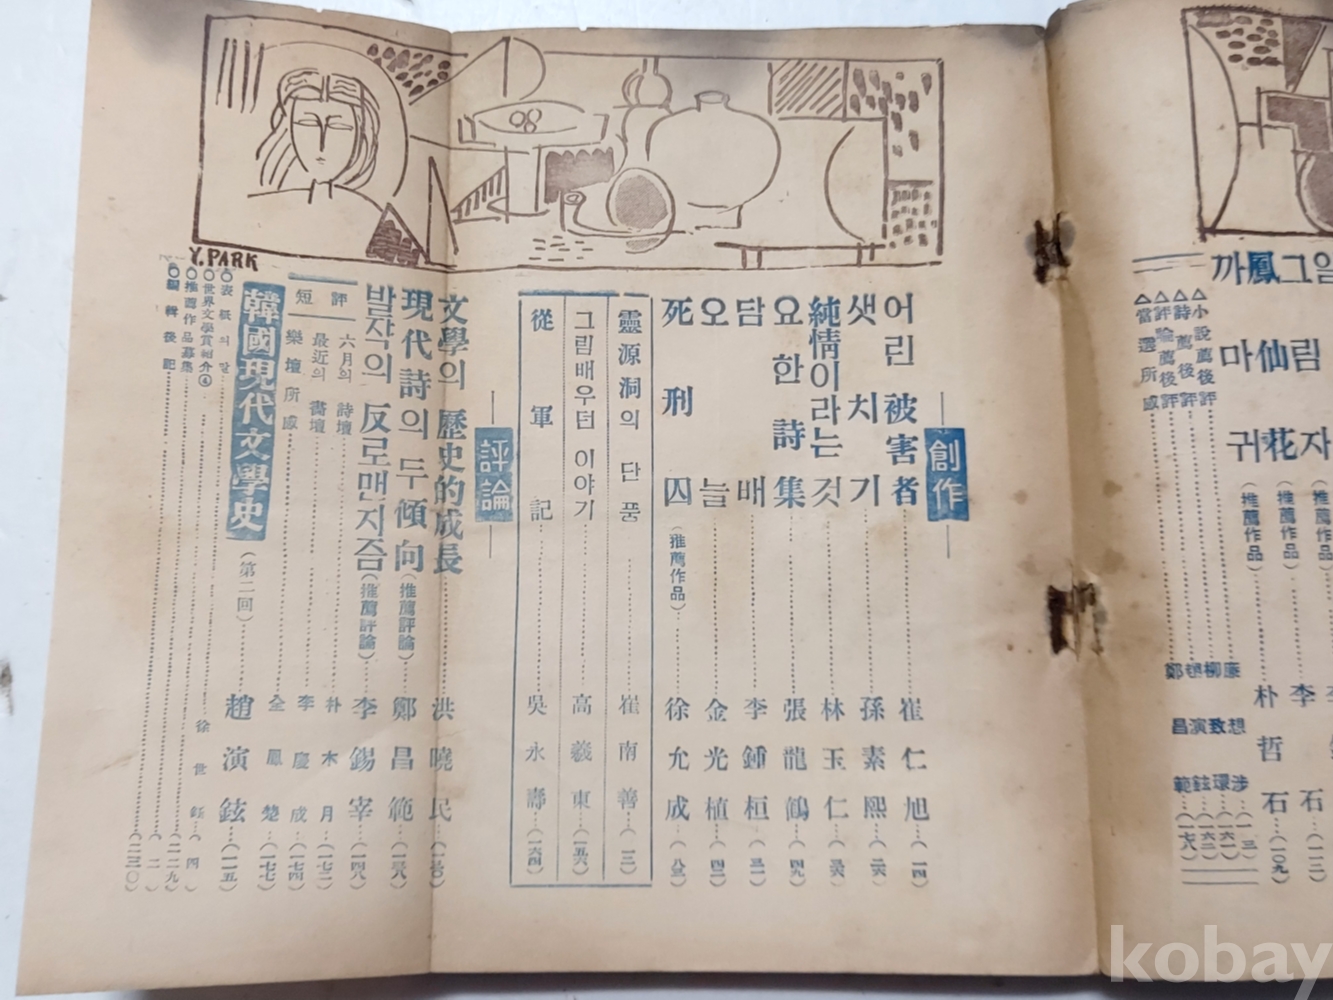 Y.PARK
創作
어린 被害者 崔仁旭 (一四)
샛치기 孫素熙 (二六)
純情이라는 것 林玉仁 (三六)
요한 詩集 張龍鶴 (四九)
담배 李鍾桓 (三一)
오늘 金光植 (四二)
死刑囚 (推薦作品) 徐允成 (八三)
靈源洞의 단풍 崔南善 (一三)
그림배우던 이야기 高羲東 (一五六)
從軍記 吳永壽 (一六四)
評論
文學의 歷史的成長 洪曉民
現代詩의 두 傾向 (推薦評論) 鄭昌範 (一三八)
발작의 反로맨지즘 (推薦評論) 李錫宰 (一四八)
短評
六月의 詩壇 朴木月 (一七二)
最近의 畵壇 李慶成 (一七四)
樂壇所感 金鳳楚 (一七七)
韓國現代文學史 (第二回) 趙演鉉 (一二五)
○表紙의 말
○世界文學賞紹介④ 徐世鈺 (四)
○推薦作品募集 (二二九)
○編輯後記 (二三〇)
그림자 (推薦作品) 李 石 (一一三)
鳳仙花 (推薦作品) 朴哲石 (一〇九)
까마귀
△小說薦後評 廉想涉
△詩薦後評 柳致環
△評論薦後評 趙演鉉
△當選所感 鄭昌範
kobay